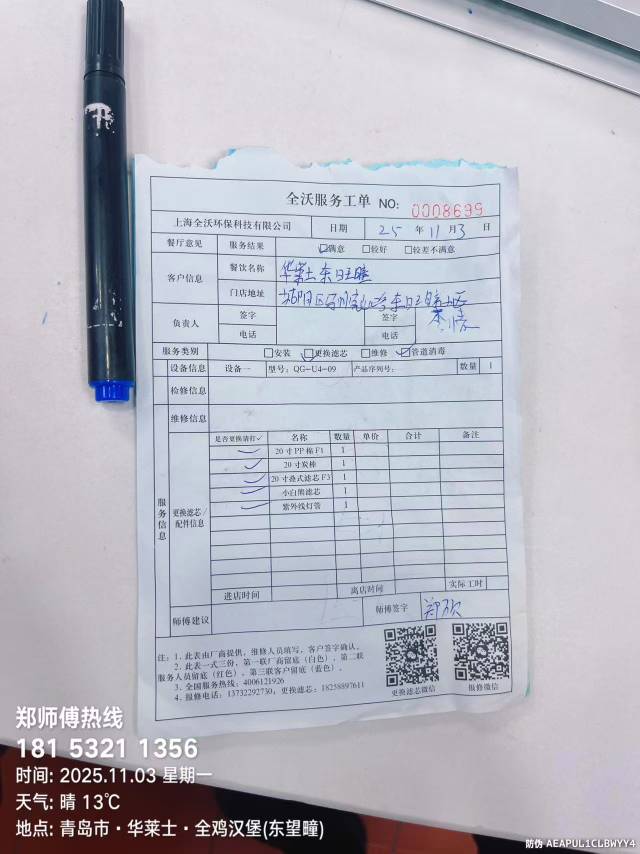 全沃服务工单 NO: 0008699
上海全沃环保科技有限公司 日期 25 年 11 月 3 日
餐厅意见 服务结果 满意 较好 较差不满意
客户信息 餐饮名称 华莱士东旺疃
门店地址
负责人 签字 签字
电话 电话
服务类别 安装 更换滤芯 维修 管道消毒
设备信息 设备一 型号: QG-U4-09 产品序列号: 数量 1
检修信息
服务信息
维修信息
更换滤芯/配件信息
是否更换请打✓ 名称 数量 单价 合计 备注
✓ 20寸PP棉F1 1
✓ 20寸炭棒 1
✓ 20寸叠式滤芯F3 1
✓ 小白熊滤芯 1
✓ 紫外线灯管 1
进店时间 离店时间 实际工时
师傅建议 师傅签字 郑欣
注: 1. 此表由厂商提供, 维修人员填写, 客户签字确认。
2. 此表一式三份, 第一联厂商留底(白色), 第二联
服务人员留底(红色), 第三联客户留底(蓝色)。
3. 全国服务热线: 4006121926
4. 报修电话: 13732292730, 更换滤芯: 18258897611
更换滤芯微信 报修微信
郑师傅热线
181 5321 1356
时间: 2025.11.03 星期一
天气: 晴 13℃
地点: 青岛市·华莱士·全鸡汉堡(东望疃)
防伪 AEAPUL1CLBWYY4